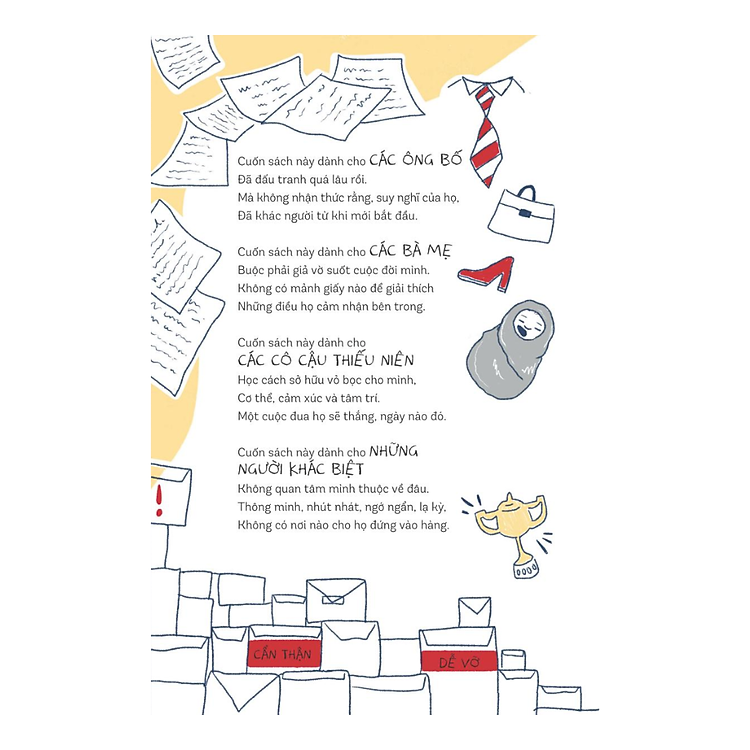 Cuốn sách này dành cho CÁC ÔNG BỐ
Đã đấu tranh quá lâu rồi.
Mà không nhận thức rằng, suy nghĩ của họ,
Đã khác người từ khi mới bắt đầu.
Cuốn sách này dành cho CÁC BÀ MẸ
Buộc phải giả vờ suốt cuộc đời mình.
Không có mảnh giấy nào để giải thích
Những điều họ cảm nhận bên trong.
Cuốn sách này dành cho
CÁC CÔ CẬU THIẾU NIÊN
Học cách sở hữu vỏ bọc cho mình,
Cơ thể, cảm xúc và tâm trí.
Một cuộc đua họ sẽ thắng, ngày nào đó.
Cuốn sách này dành cho NHỮNG
NGƯỜI KHÁC BIỆT
Không quan tâm mình thuộc về đâu.
Thông minh, nhút nhát, ngờ nghẩn, lạ kỳ,
Không có nơi nào cho họ đứng vào hàng.
!
CẨN THẬN
DỄ VỠ